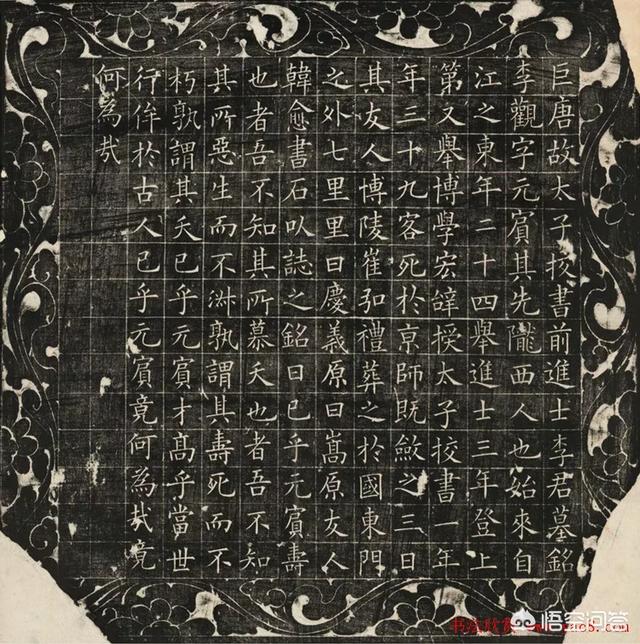 巨唐故太子挍書前進士李君墓銘
李觀字元賓其先隴西人也始來自
江之東年二十四舉進士三年登上
第又舉博學宏辭授太子挍書一年
年三十九客死於京師既斂之三日
其友人博陵崔弘禮葬之於國東門
之外七里里曰慶義原曰嵩原友人
韓愈書石以誌之銘曰已乎元賓壽
也者吾不知其所慕夭也者吾不知
其所惡生而不淑孰謂其壽死而不
朽孰謂其夭已乎元賓才高乎當世
行侔於古人已乎元賓竟何為哉竟
何為哉
书法欣
悟空问答